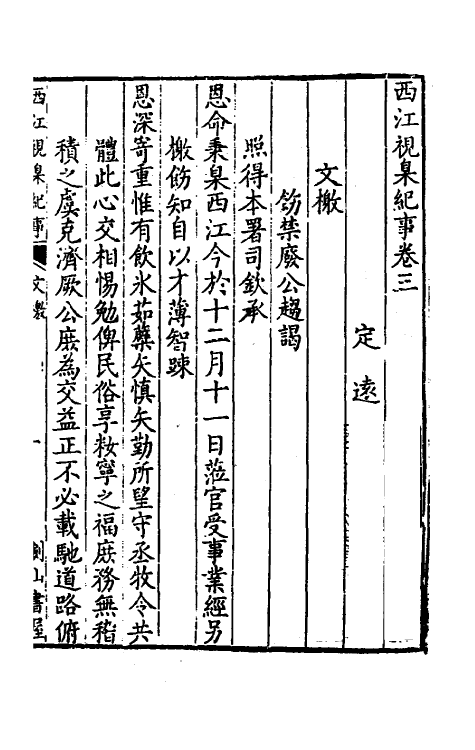 西江視臬紀事卷三
定遠
文檄
飭禁廢公趨謁
照得本署司欽承
恩命秉臬西江今於十二月十一日蒞官受事業經另
檄飭知自以才薄智踈
恩深寄重惟有飲氷茹蘗矢慎矢勤所望守丞牧令共
體此心交相惕勉俾民俗享敉寧之福庶務無稽
積之虞克濟厥公庶為交益正不必載馳道路俯
西江視臬紀事 文檄 一 劍山書屋